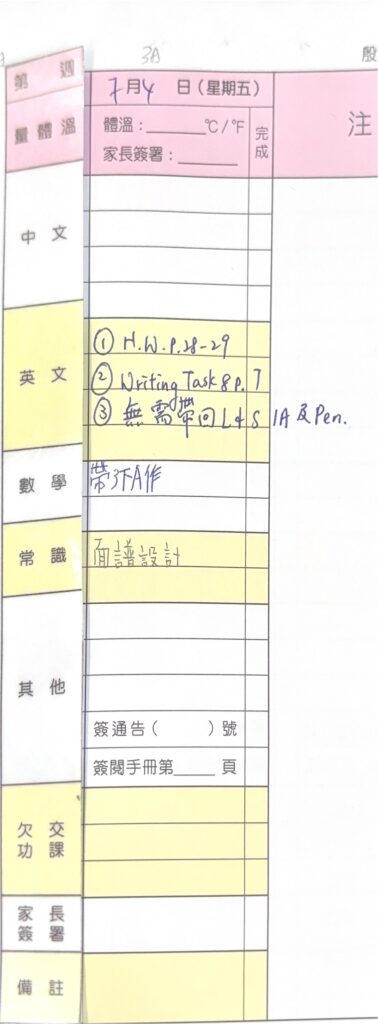 3A
殷
第 週
7月4 日(星期五)
量體溫
體溫:______℃/℉
完成
注
家長簽署:______
中文
英文
① H.W.P.28-29
② Writing Task 8 P.7
③ 無需帶回L&S 1A及Pen.
數學
帶3下A作
常識
面譜設計
其他
簽通告( )號
簽閱手冊第____頁
欠交
功課
家長
簽署
備註